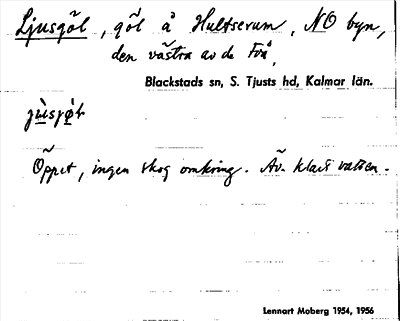 Ljusgöl, göl å Hultserum, NO byn,
den västra av de två.
Blackstads sn, S. Tjusts hd, Kalmar län.
Öppet, ingen skog omkring. Äv. klart vatten.
Lennart Moberg 1954, 1956